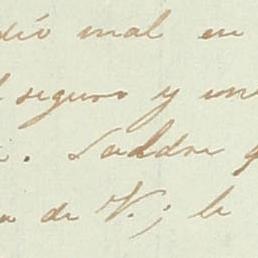 dió mal en
seguro y un
Saldra
a de V.; le